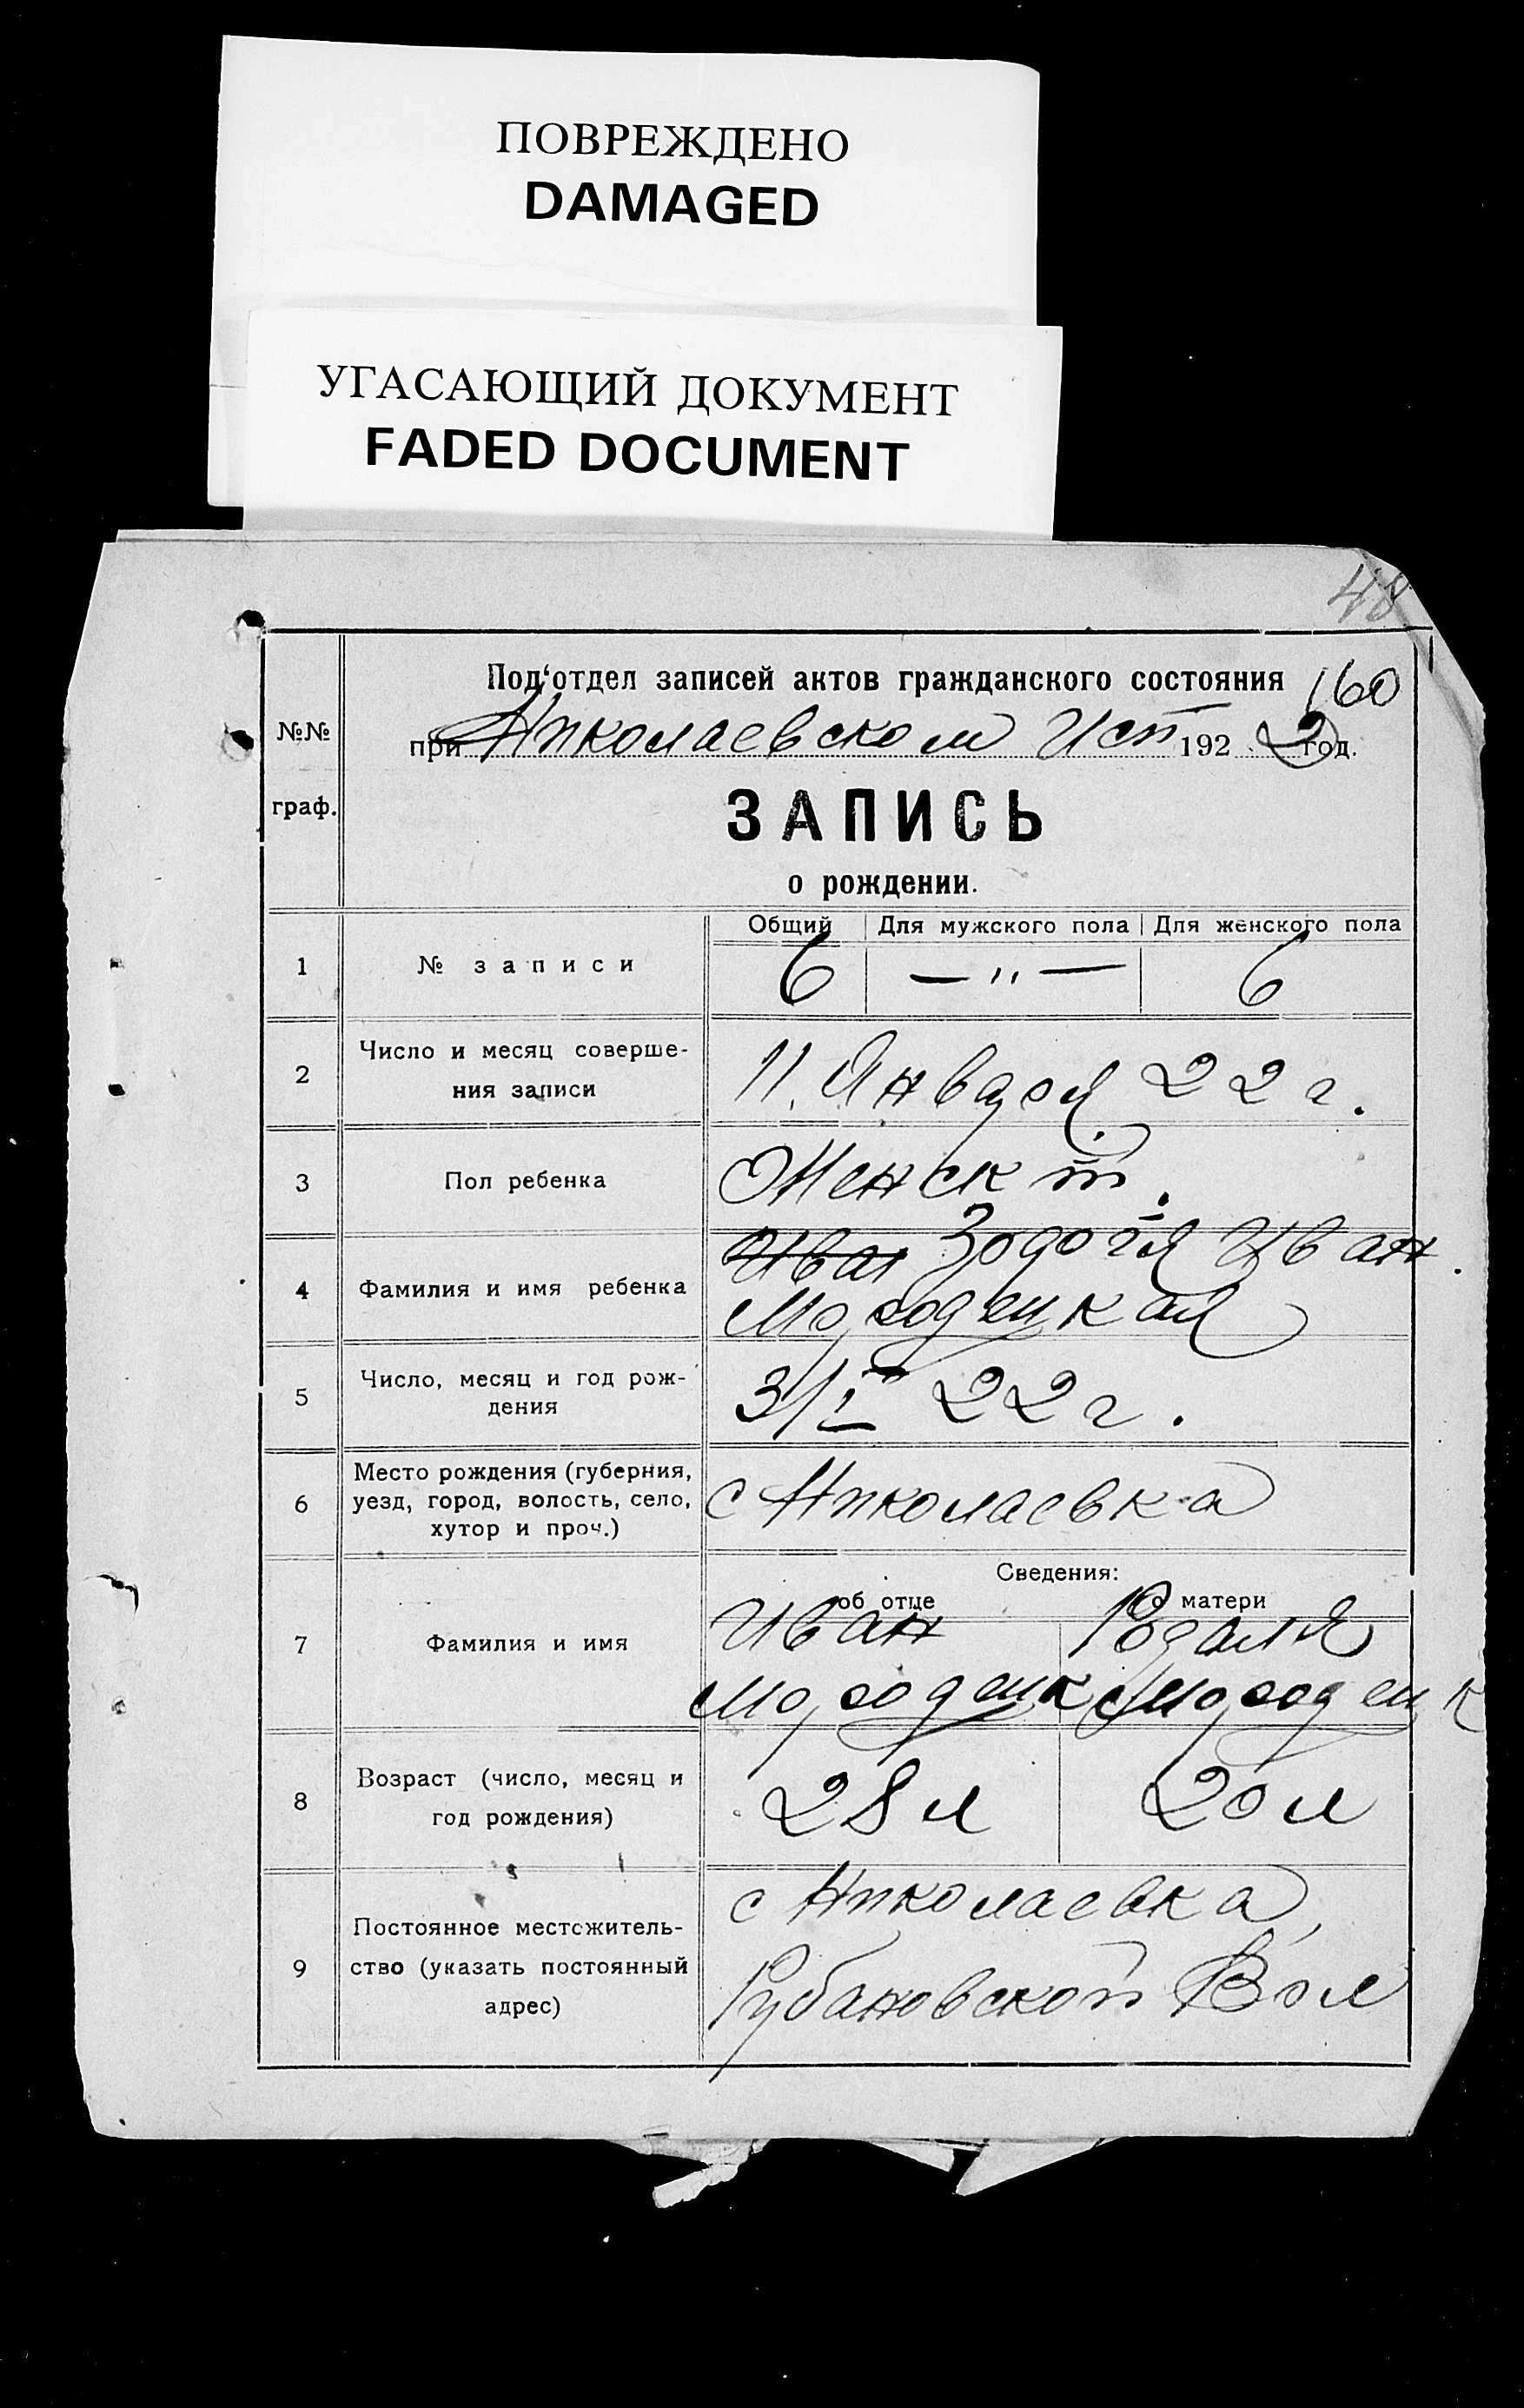 ПОВРЕЖДЕНО
DAMAGED
УГАСАЮЩИЙ ДОКУМЕНТ
FADED DOCUMENT
48
Под'отдел записей актов гражданского состояния 160
№№ граф.
при Николаевском Исп 192 2 год.
ЗАПИСЬ
о рождении.
Общий Для мужского пола Для женского пола
1 № записи 6 — " — 6
2 Число и месяц соверше-
ния записи 11. Января 22 г.
3 Пол ребенка Женск
4 Фамилия и имя ребенка Иван
Мородецкая
5 Число, месяц и год рож-
дения 3/I 22 г.
Место рождения (губерния,
6 уезд, город, волость, село, с Николаевка
хутор и проч.)
Сведения:
об отце о матери
7 Фамилия и имя Иван
Мородецк Мородецк
8 Возраст (число, месяц и
год рождения) 28 л 20 л
с Николаевка,
Постоянное местожитель-
9 ство (указать постоянный
адрес) Рубановской Вол